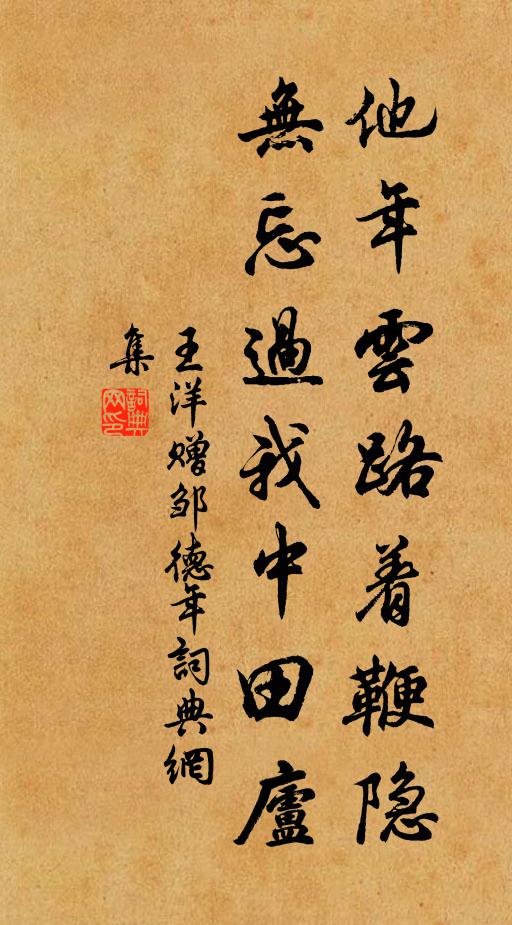 他年雲路着鞭隐
無忘過我中田廬
王洋赠邹德年詞典網
集
詞典網印